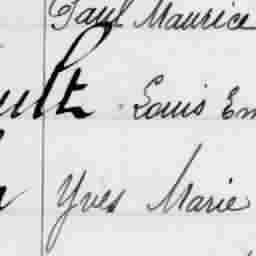 Paul Maurice
ult Louis Em
Yves Marie